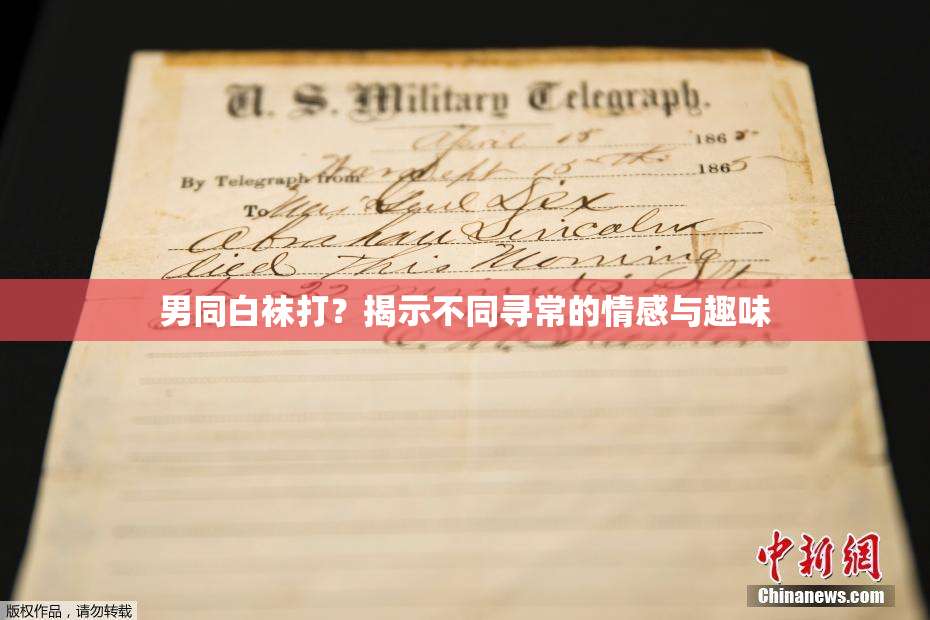 U. S. Military Telegraph.
April 15 1865
By Telegraph from War Dept 15th 1865
To Maj Genl Dix
Abraham Lincoln
died This Morning
at 22 minutes after
男同白袜打？揭示不同寻常的情感与趣味
E. M. Stanton
中新网
Chinanews.com
版权作品，请勿转载